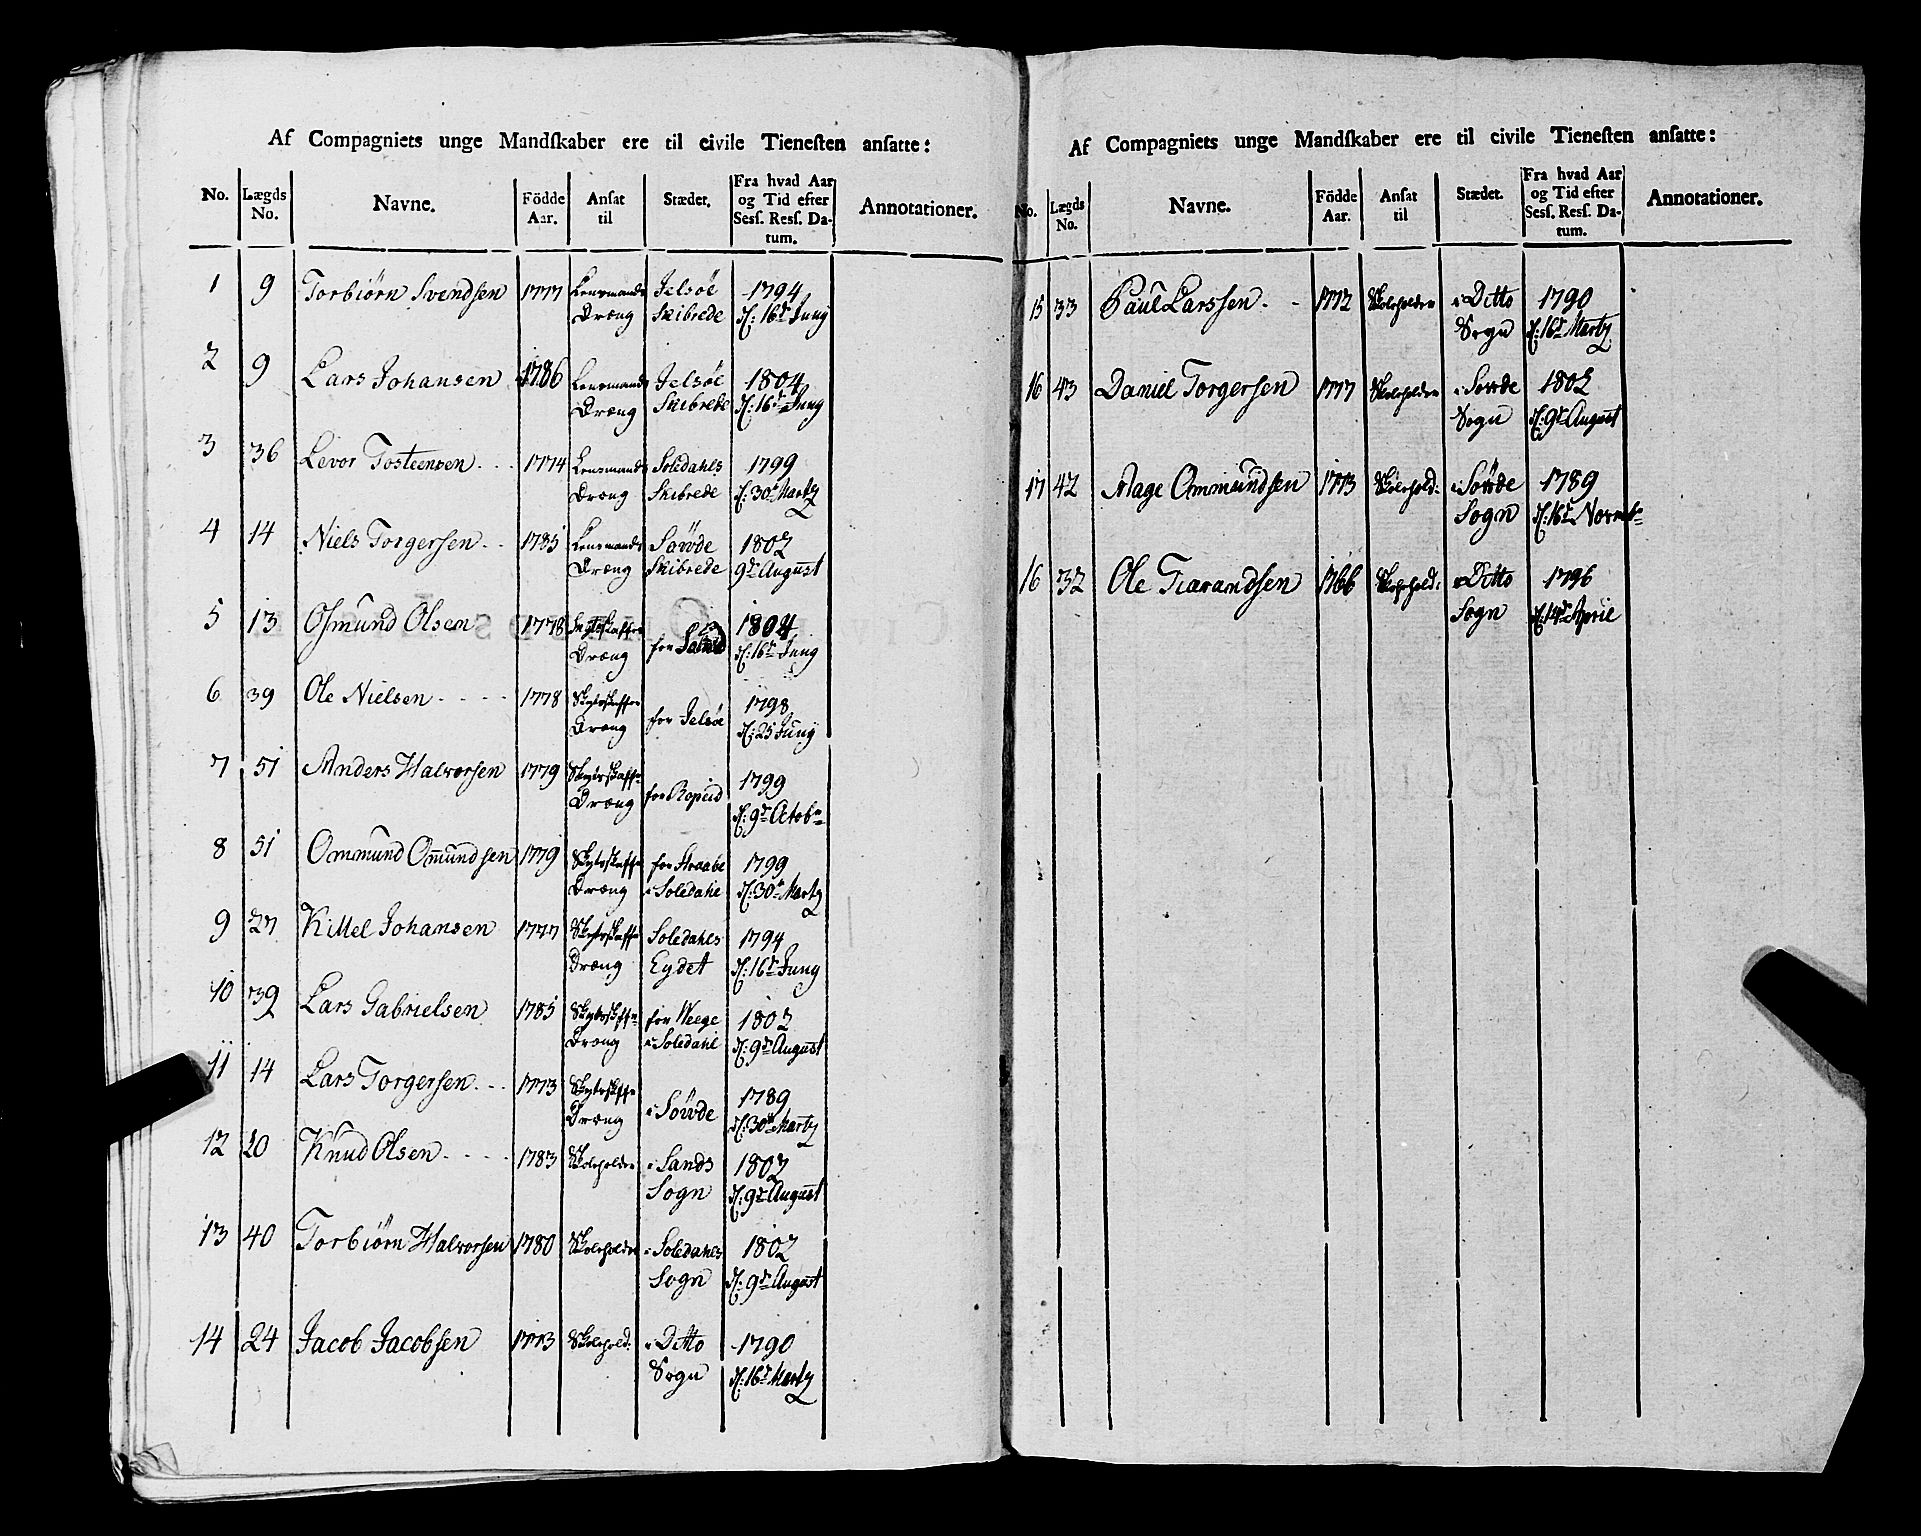 Af Compagniets unge Mandſkaber ere til civile Tieneſten anſatte:
No. Lægds No. Navne. Födde Aar. Anſat til Stædet. Fra hvad Aar og Tid efter Sesſ. Resſ. Datum. Annotationer.
1 9 Torbiörn Svendsen 1777 Lensmands Jelsöe 1794
Dræng Skibrede d: 16de Juny
2 9 Lars Johansen 1786 Lensmands Jelsöe 1804
Dræng Skibrede d: 16de Juny
3 36 Levor Tosteensen 1774 Lensmands Soledahls 1799
Dræng Skibrede d: 30te Marty
4 14 Niels Torgersen 1785 Lensmands Sövde 1802
Dræng Skibrede 9de August
5 13 Osmund Olsen 1778 Skydsskaffer 1804
Dræng for d: 16de Juny
6 39 Ole Nielsen 1778 Skydsskaffer 1798
Dræng for Jelsöe d: 25 Juny
7 51 Anders Halvorsen 1779 Skydsskaffer 1799
Dræng for Ropeid d: 9de Octobr
8 51 Ommund Om̄undsen 1779 Skydsskaffer for Straabe 1799
Dræng i Soledahl d: 30te Marty
9 27 Kittel Johansen 1777 Skydsskaffer Soledahls 1794
Dræng Eydet d: 16de Juny
10 39 Lars Gabrielsen 1785 Skydsskaffer for Weege 1802
Dræng i Soledahl d: 9de August
11 14 Lars Torgersen 1773 Skydsskaffer 1789
Dræng i Sövde d: 30te Marty
12 20 Knud Olsen 1783 Skoleholder i Sands 1802
Sogn d: 9de August
13 40 Torbiörn Halvorsen 1780 Skoleholder i Soledahls 1802
Sogn d: 9de August
14 24 Jacob Jacobsen 1773 Skolehold: i Ditto 1790
Sogn d: 16de Marty
Af Compagniets unge Mandſkaber ere til civile Tieneſten anſatte:
No. Lægds No. Navne. Födde Aar. Anſat til Stædet. Fra hvad Aar og Tid efter Sesſ. Resſ. Datum. Annotationer.
15 33 Paul Larssen 1772 Skoleholder i Ditto 1790
Sogn d: 16de Marty
16 43 Daniel Torgersen 1777 Skoleholder i Sövde 1802
Sogn d: 9de August
17 42 Aage Ommundsen 1773 Skolehold: i Sövde 1789
Sogn d: 16de Novembr
16 32 Ole Tiarandsen 1766 Skolehold: i Ditto 1796
Sogn d: 14de April